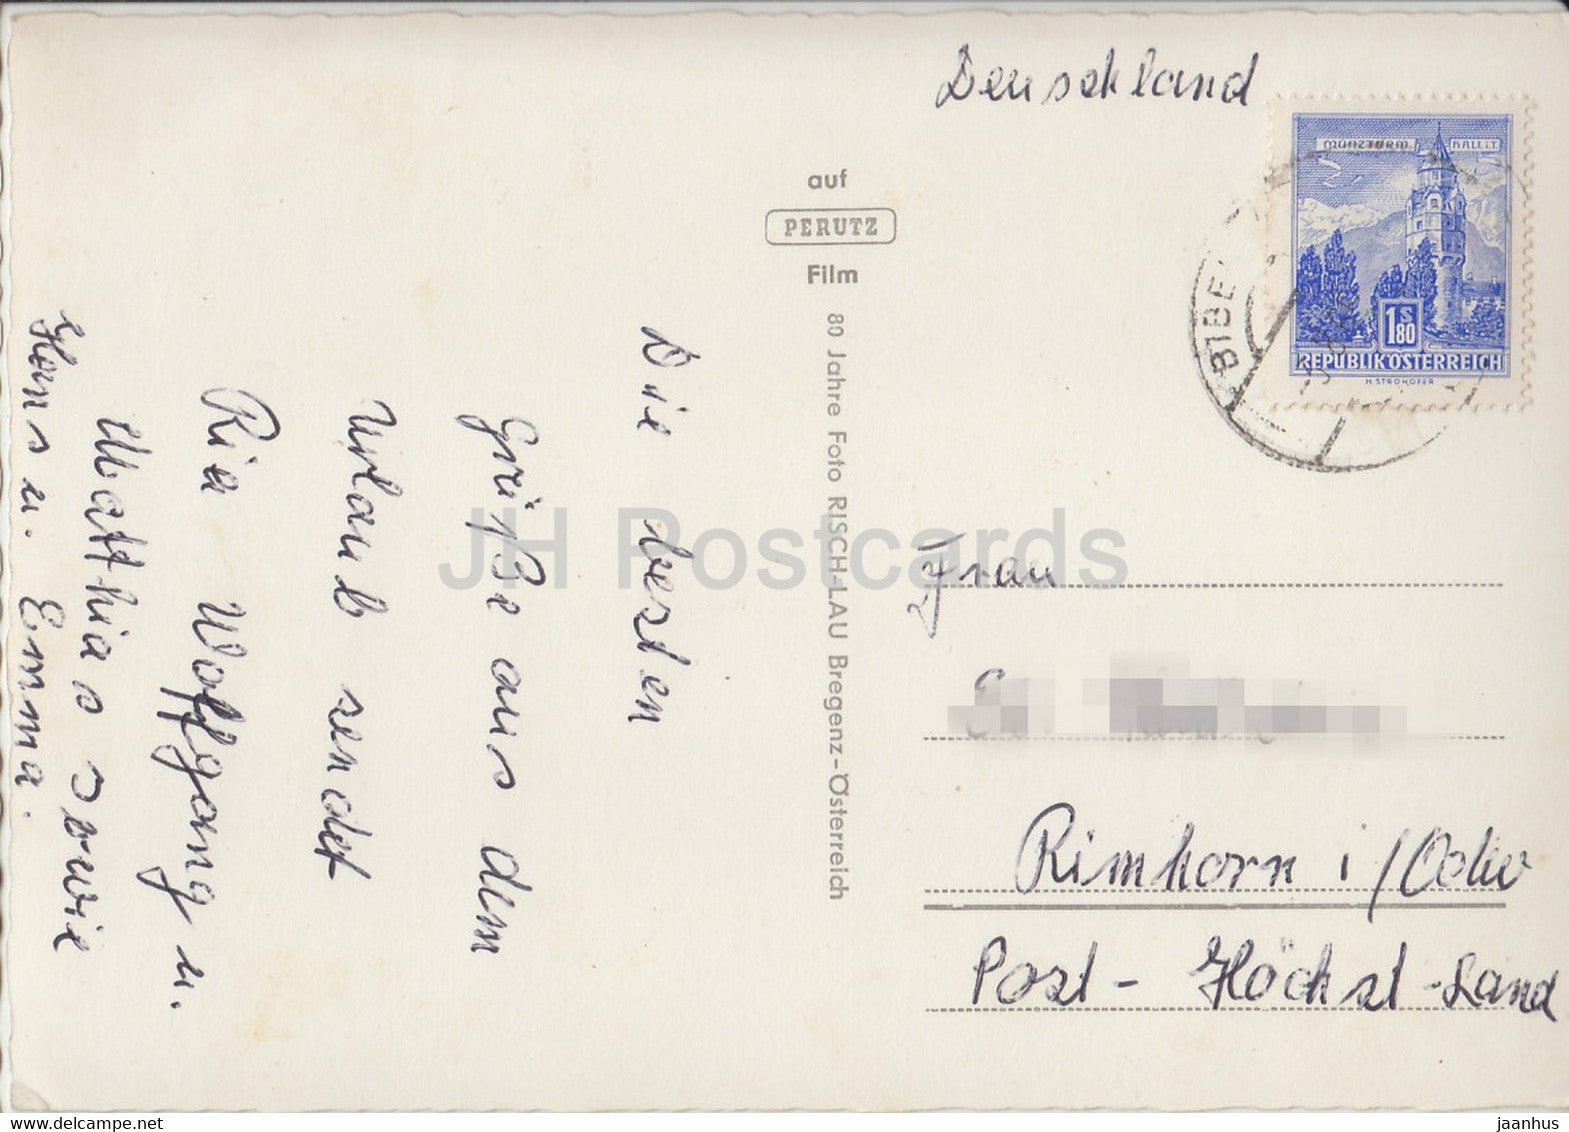 Deuschland
MÜNZTURM HALL i.T.
1 S 80
REPUBLIK ÖSTERREICH
H. STROHOFER
BIBE
auf
PERUTZ
Film
80 Jahre Foto RISCH-LAU Bregenz-Österreich
Die besten
Grüße aus dem
Urlaub sendet
Ria Wolfgang u.
Matthias sowie
Hans u. Emma.
Frau
Rimhorn i/Odw
Post - Höchst-Land
JH Postcards
www.delcampe.net
jaanhus